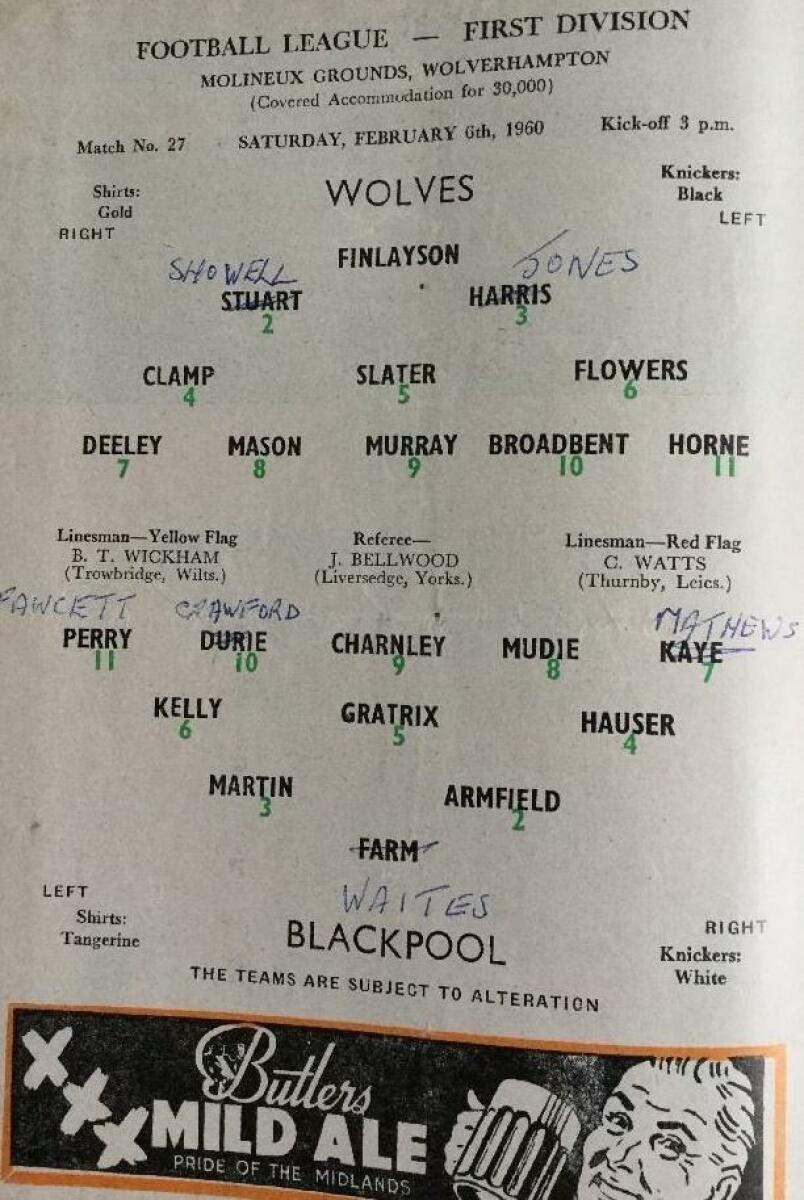 FOOTBALL LEAGUE — FIRST DIVISION
MOLINEUX GROUNDS, WOLVERHAMPTON
(Covered Accommodation for 30,000)
Match No. 27 SATURDAY, FEBRUARY 6th, 1960 Kick-off 3 p.m.
Shirts: Gold WOLVES Knickers: Black
RIGHT LEFT
FINLAYSON
SHOWELL JONES
STUART HARRIS
2 3
CLAMP SLATER FLOWERS
4 5 6
DEELEY MASON MURRAY BROADBENT HORNE
7 8 9 10 11
Linesman—Yellow Flag Referee— Linesman—Red Flag
B. T. WICKHAM J. BELLWOOD C. WATTS
(Trowbridge, Wilts.) (Liversedge, Yorks.) (Thurnby, Leics.)
FAWCETT CRAWFORD MATHEWS
PERRY DURIE CHARNLEY MUDIE KAYE
11 10 9 8 7
KELLY GRATRIX HAUSER
6 5 4
MARTIN ARMFIELD
3 2
FARM
WAITES
LEFT RIGHT
Shirts: Tangerine BLACKPOOL Knickers: White
THE TEAMS ARE SUBJECT TO ALTERATION
XXX Butlers
MILD ALE
PRIDE OF THE MIDLANDS